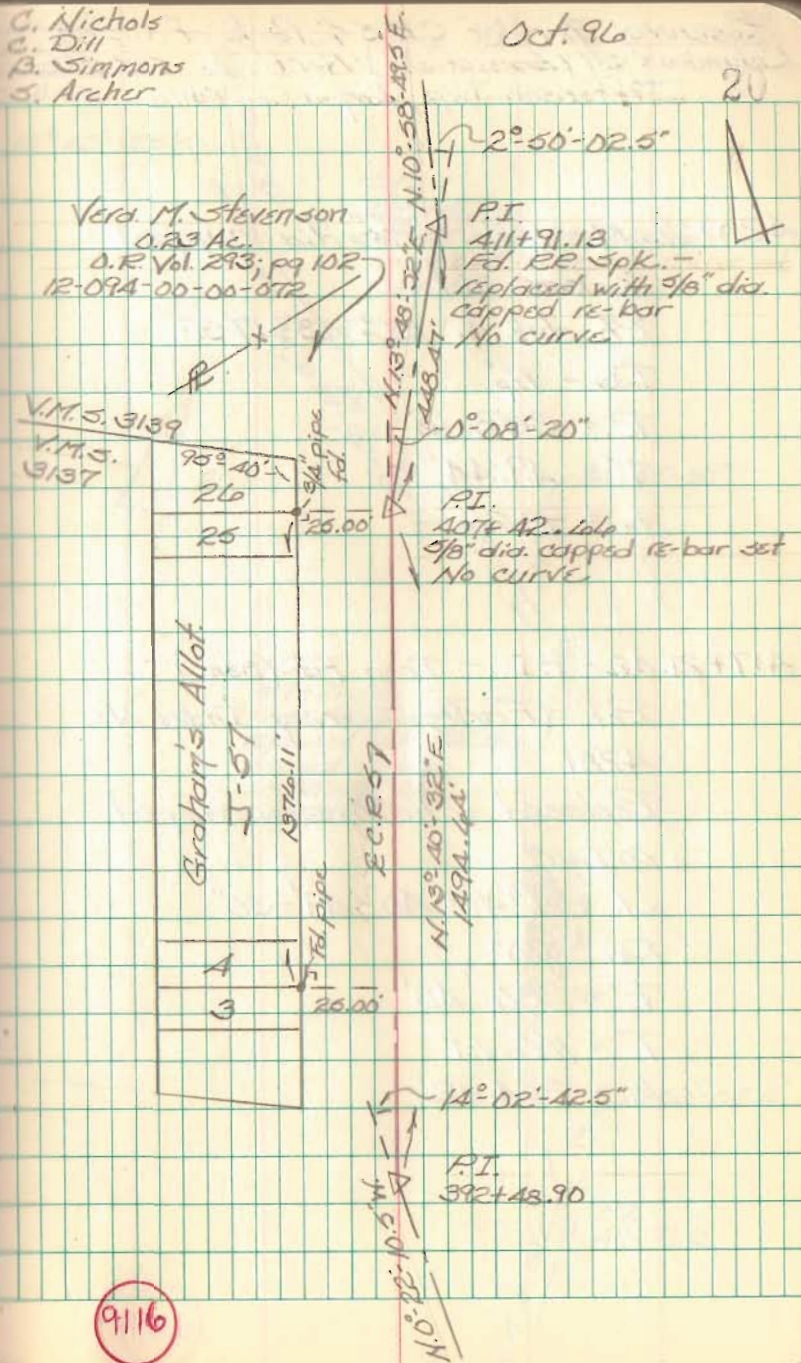 C. Nichols
C. Dill
B. Simmons
S. Archer
Oct. 96
20
2°-50'-02.5"
N.10°-58'-49.5"E.
Verd. M. Stevenson
0.23 Ac.
O.R. Vol. 293; pg 102
12-094-00-00-072
P.I.
411+91.13
Fd. RR Spk. -
replaced with 5/8" dia.
capped re-bar
No curve
N.13°-48'-32"E
448.47'
V.M.S. 3139
V.M.S.
3137
95°-40'
3/4" pipe
fd.
26
25
25.00'
0°-08'-20"
P.I.
407+42.66
5/8" dia. capped re-bar set
No curve
Graham's Allot.
J-57
1376.11'
C.R. 57
N.13°-40'-32"E.
1494.64'
Fd. pipe
4
3
25.00'
14°-02'-42.5"
P.I.
392+48.90
N.0°-22'-10.5"W.
9116